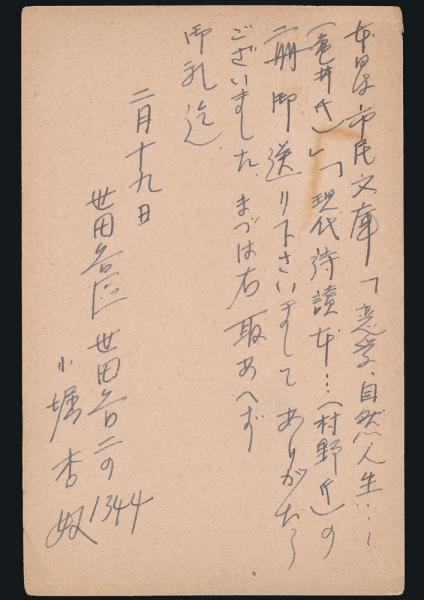 本日は市民文庫「恋愛、自然、人生…」
(亀井氏)」「現代詩讀本…(村野氏)の
二冊御送り下さいましてありがたう
ございました、まづは右取あへず
御礼迄、
二月十九日
世田谷區世田谷二の1344
小堀杏奴